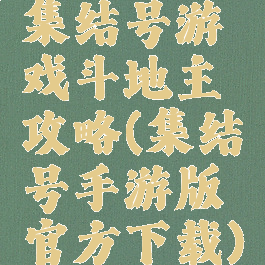 集结号游
戏斗地主
攻略(集结
号手游版
官方下载)